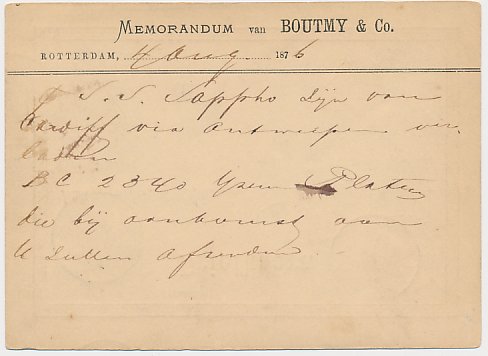 MEMORANDUM van BOUTMY & Co.
ROTTERDAM, 4 Aug. 1876
S. S. Sappho zijn van
Cardiff via Antwerpen ver-
laden
BC 2340 Yzeren Platen
die bij aankomst aan
U zullen afzenden